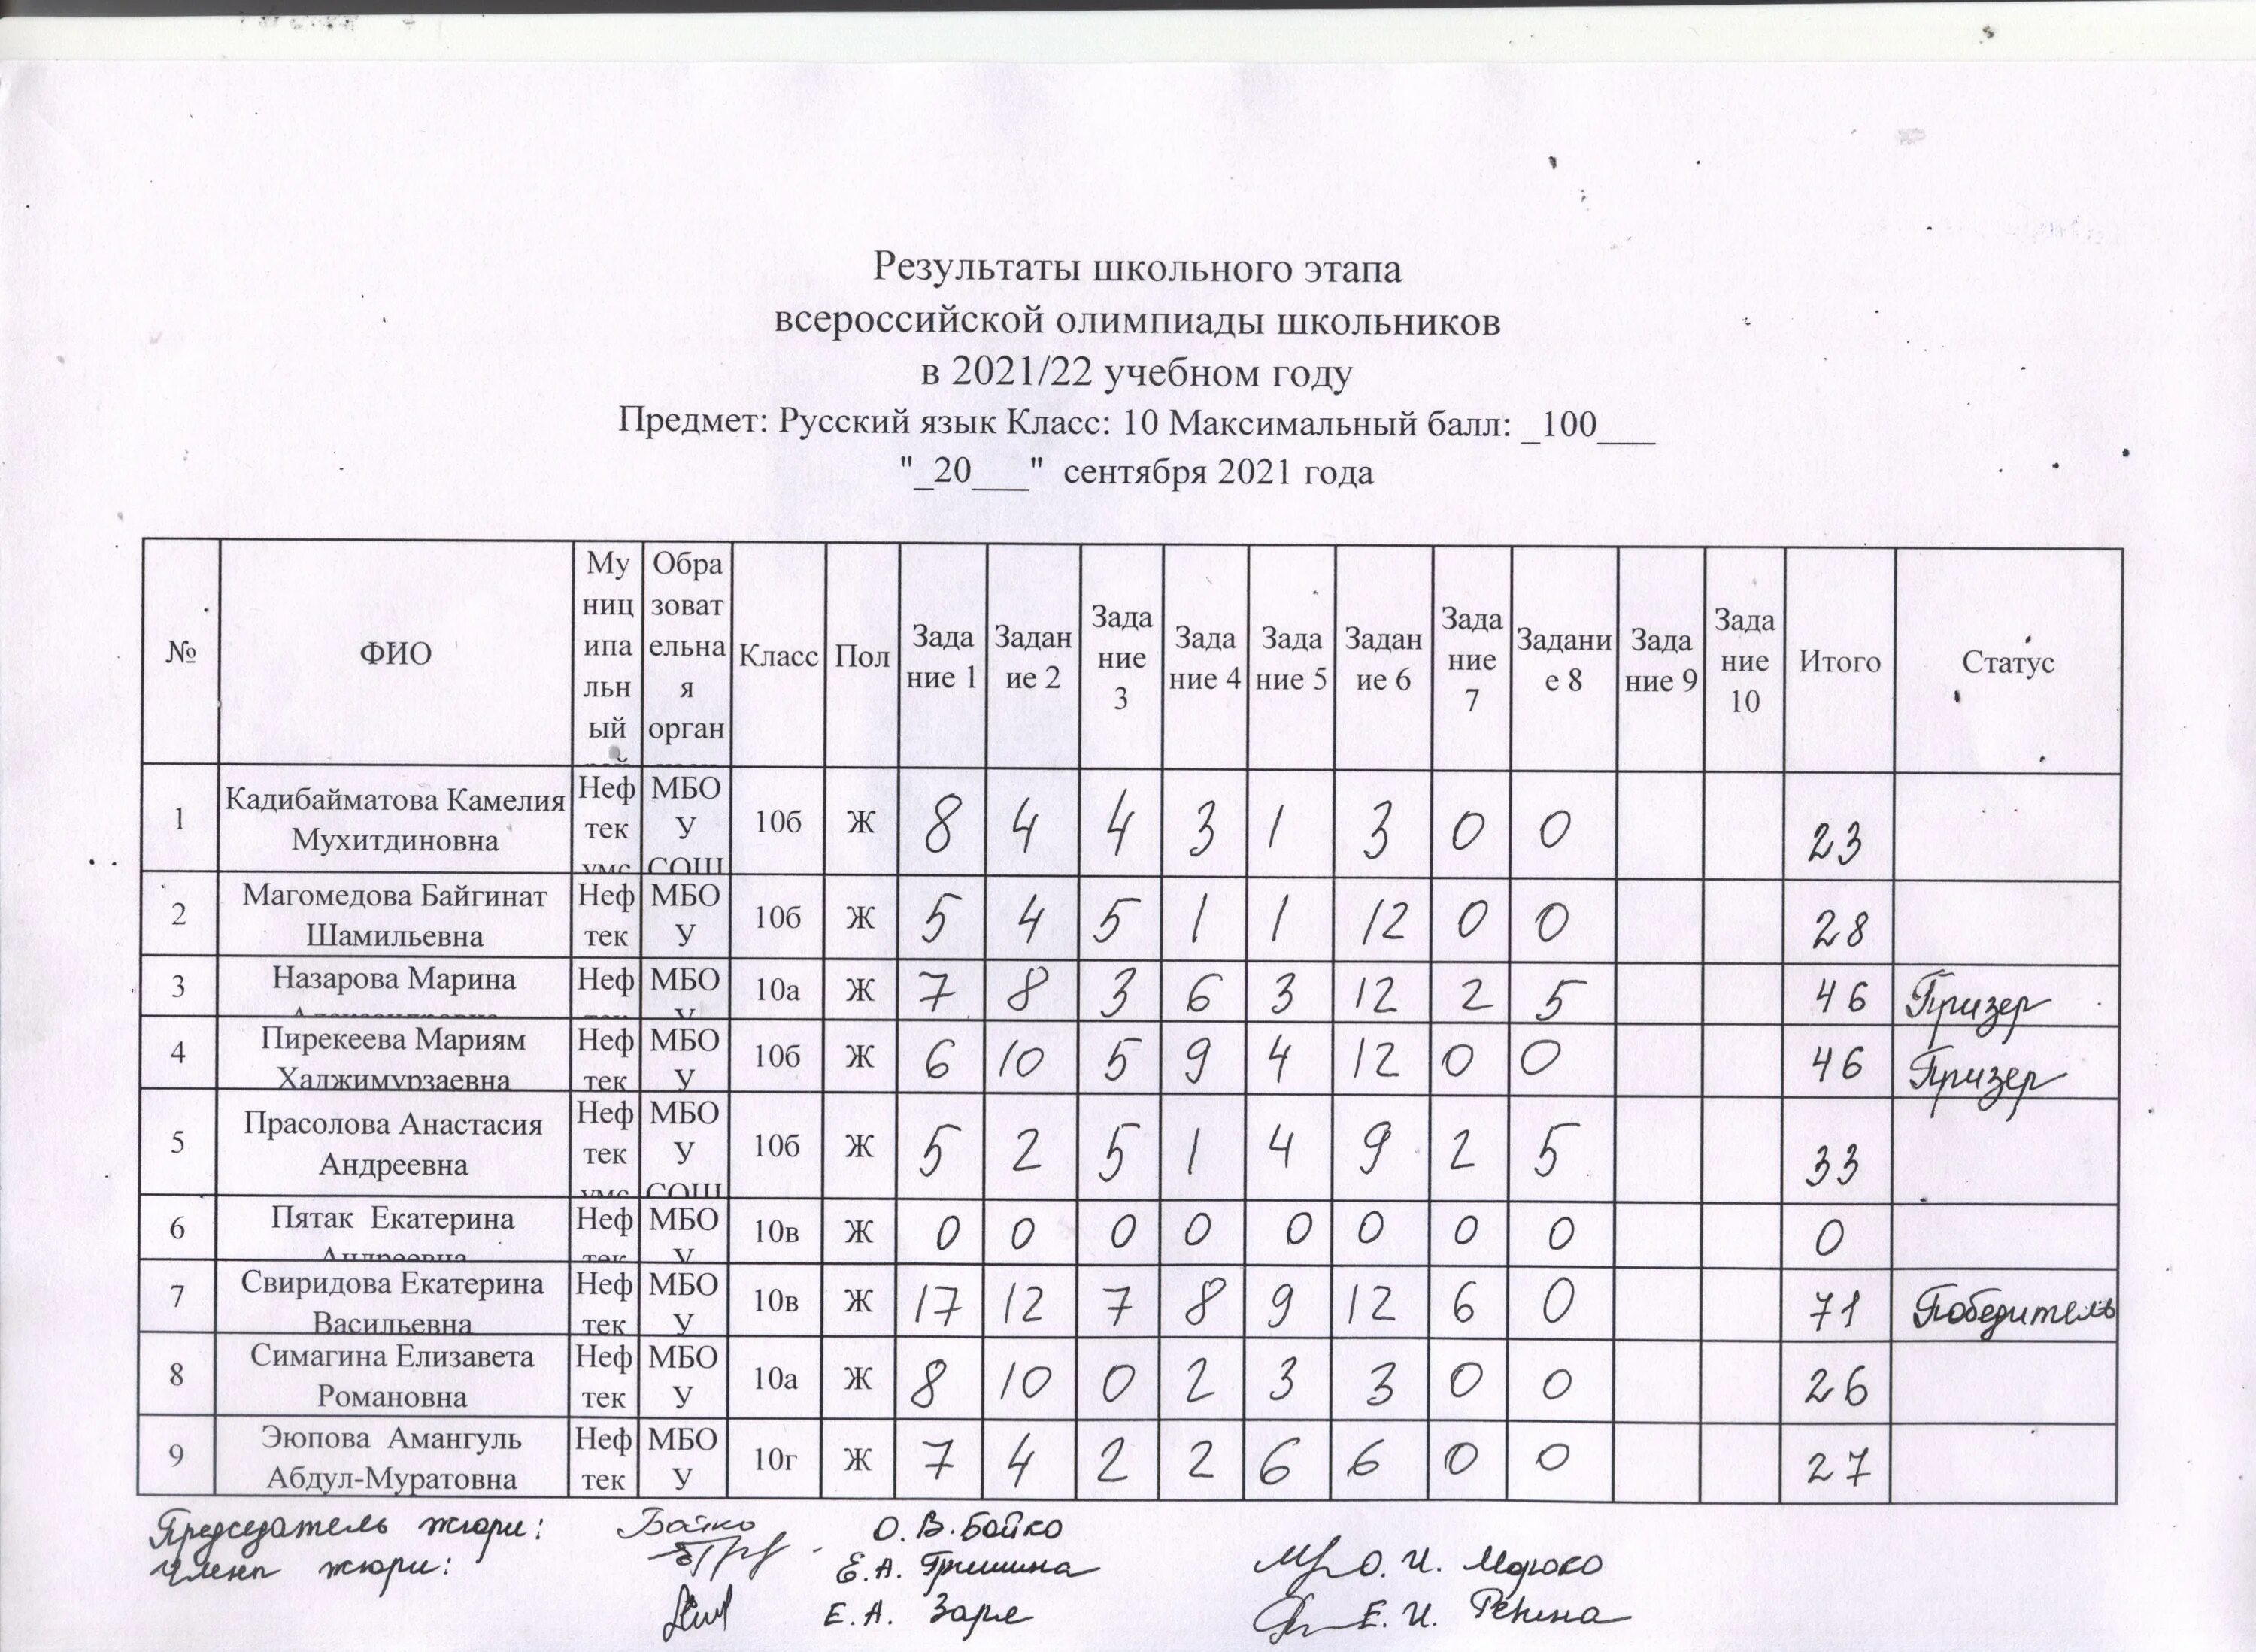 Результаты школьного этапа
всероссийской олимпиады школьников
в 2021/22 учебном году
Предмет: Русский язык Класс: 10 Максимальный балл: _100___
"_20___" сентября 2021 года
№ ФИО Муниципальный Образовательная орган Класс Пол Задание 1 Задание 2 Задание 3 Задание 4 Задание 5 Задание 6 Задание 7 Задание 8 Задание 9 Задание 10 Итого Статус
1 Кадибайматова Камелия Мухитдиновна Нефтек МБОУ СОШ 10б Ж 8 4 4 3 1 3 0 0 23
2 Магомедова Байгинат Шамильевна Нефтек МБОУ 10б Ж 5 4 5 1 1 12 0 0 28
3 Назарова Марина Нефтек МБОУ 10а Ж 7 8 3 6 3 12 2 5 46 Призер
4 Пирекеева Мариям Халжимурзаевна Нефтек МБОУ 10б Ж 6 10 5 9 4 12 0 0 46 Призер
5 Прасолова Анастасия Андреевна Нефтек МБОУ СОШ 10б Ж 5 2 5 1 4 9 2 5 33
6 Пятак Екатерина Андреевна Нефтек МБОУ 10в Ж 0 0 0 0 0 0 0 0 0
7 Свиридова Екатерина Васильевна Нефтек МБОУ 10в Ж 17 12 7 8 9 12 6 0 71 Победитель
8 Симагина Елизавета Романовна Нефтек МБОУ 10а Ж 8 10 0 2 3 3 0 0 26
9 Эюпова Амангуль Абдул-Муратовна Нефтек МБОУ 10г Ж 7 4 2 2 6 6 0 0 27
Председатель жюри: Бойко О.В.Бойко
Члены жюри: Е.А. Гришина О.И. Мороко
Е.А. Заря Е.И. Репина